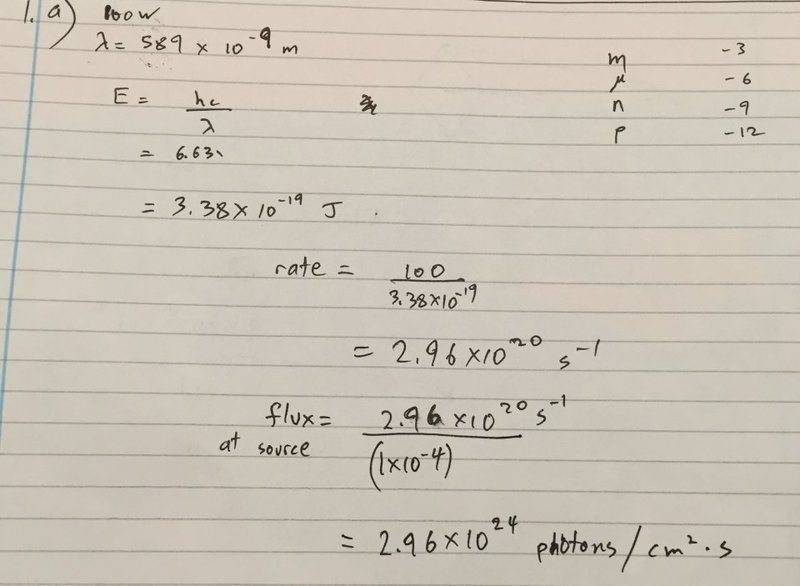 1. a) 100W
λ = 589 × 10⁻⁹ m
m -3
μ -6
n -9
p -12
E = hc / λ
= 6.63
= 3.38 × 10⁻¹⁹ J .
rate = 100 / 3.38×10⁻¹⁹
= 2.96 ×10²⁰ s⁻¹
flux = 2.96 ×10²⁰ s⁻¹ / (1×10⁻⁴)
at source
= 2.96 ×10²⁴ photons / cm² · s